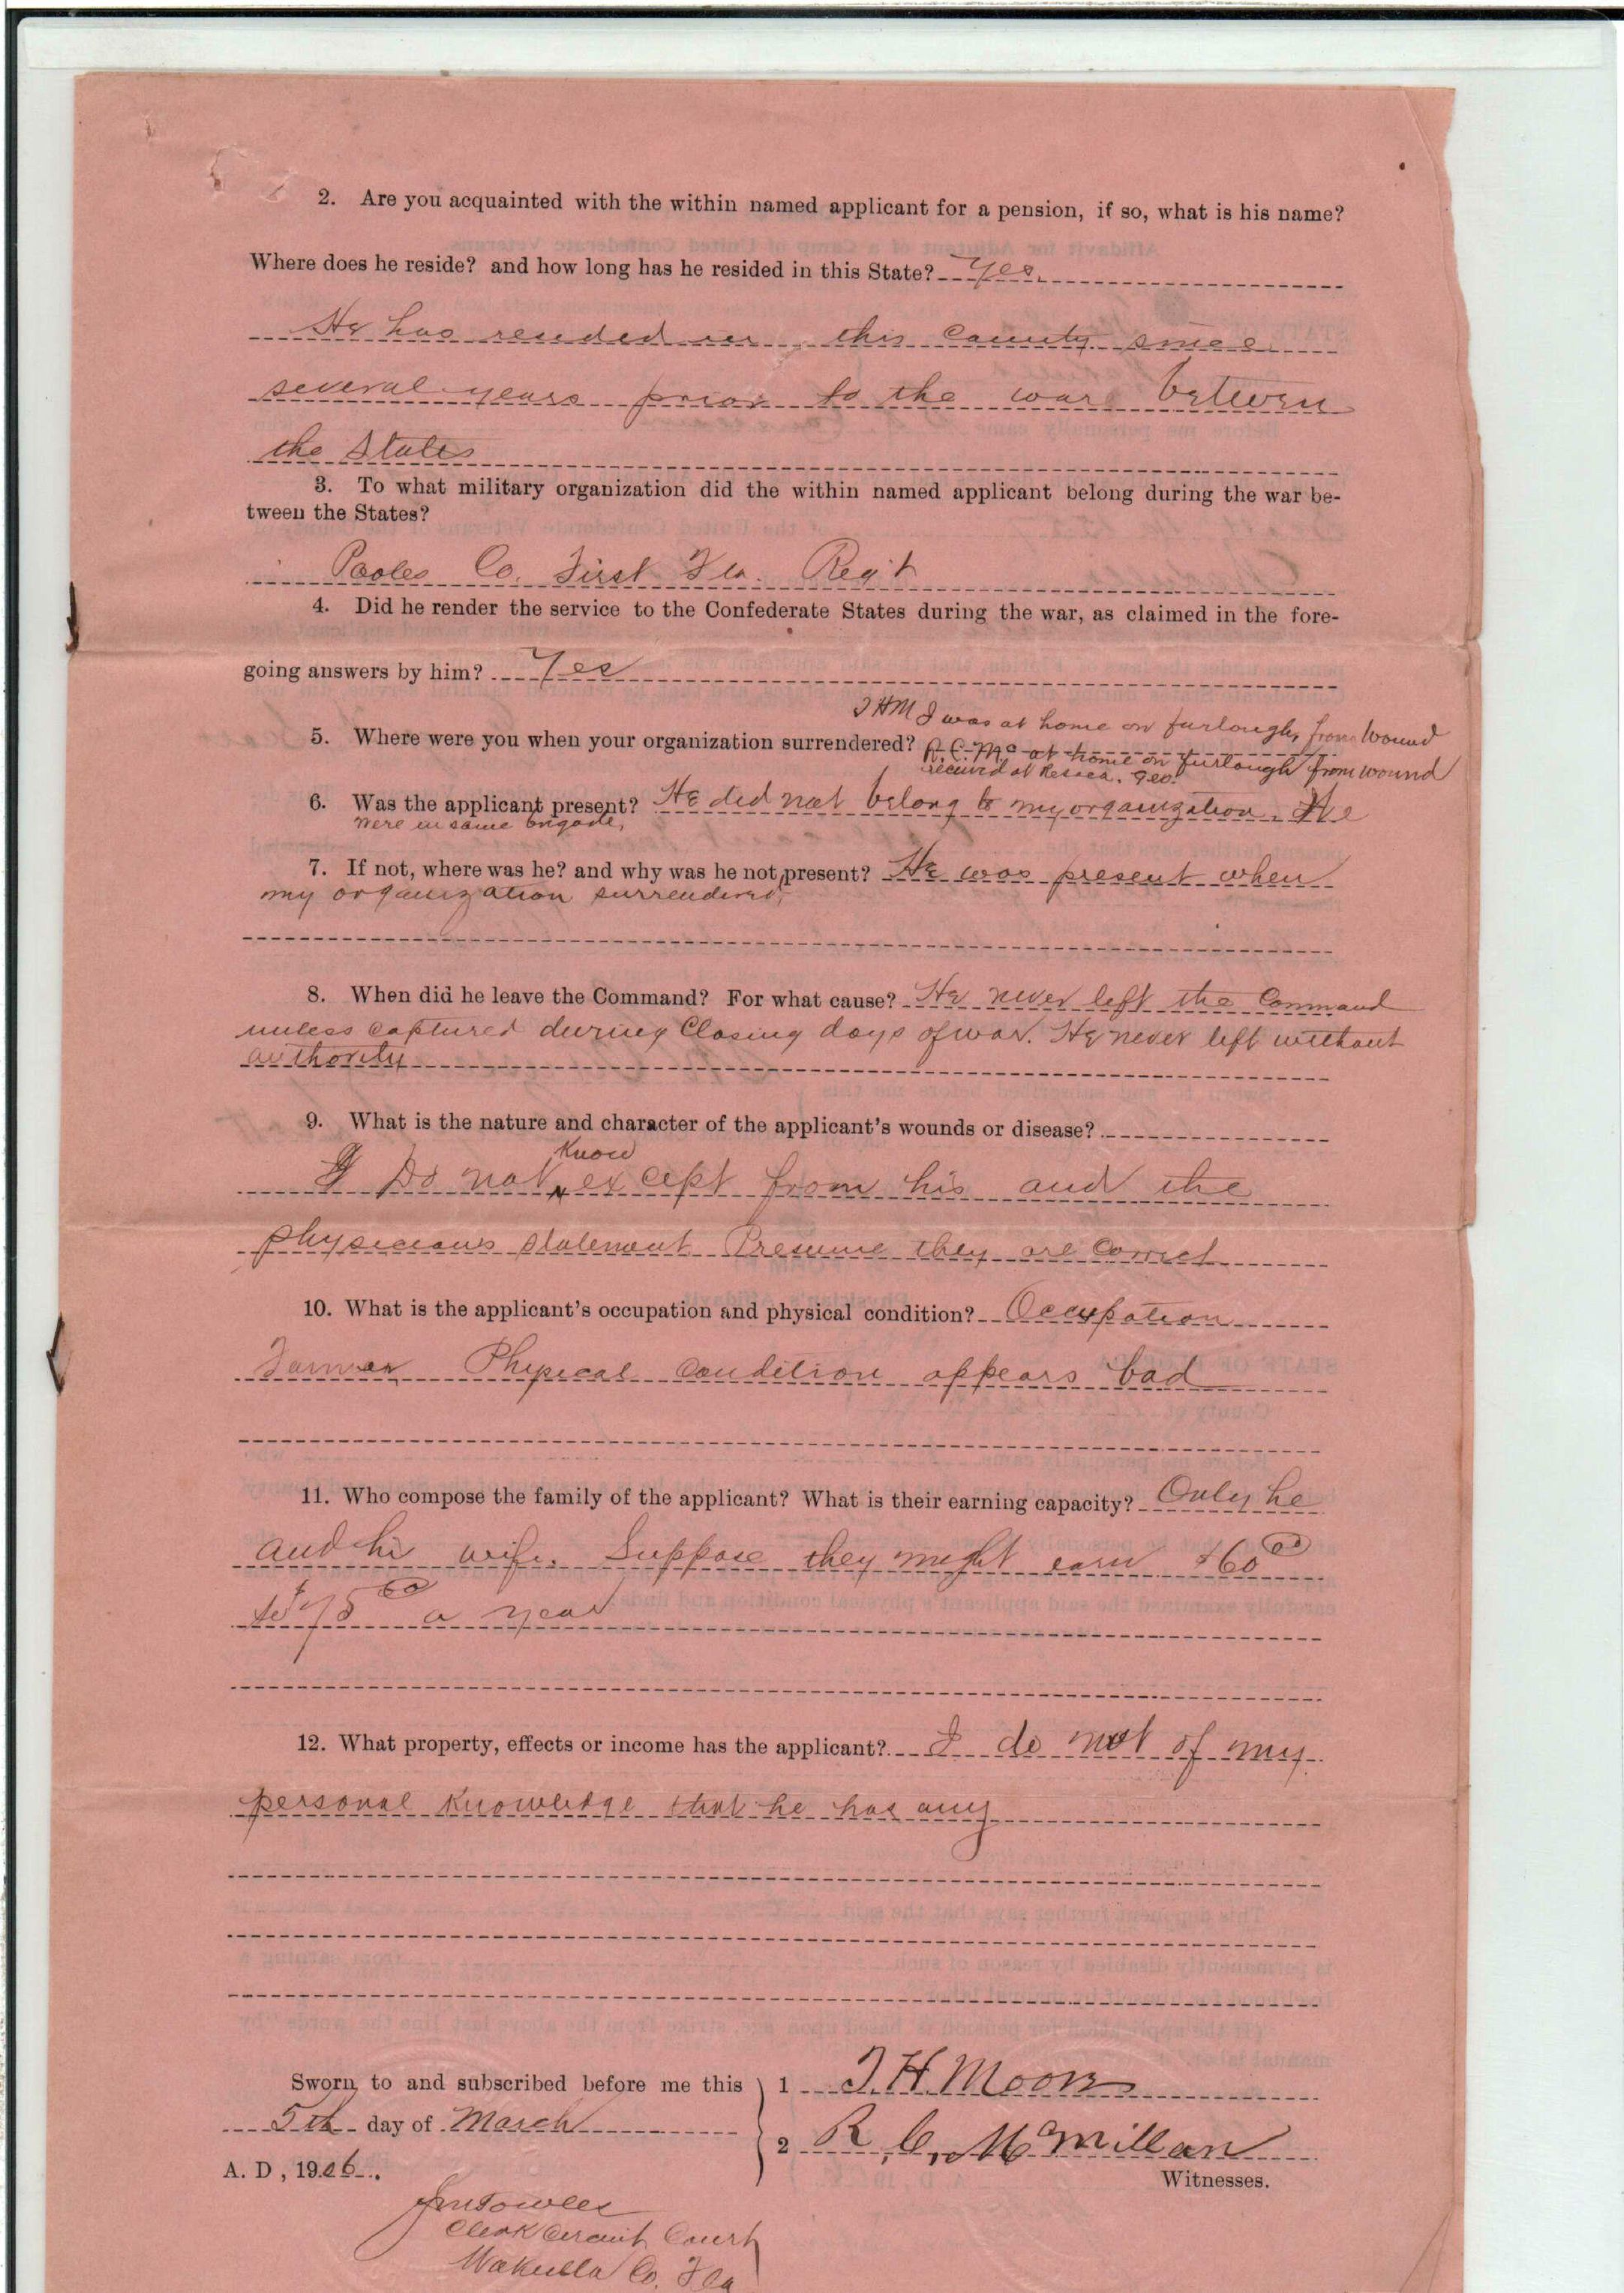 2. Are you acquainted with the within named applicant for a pension, if so, what is his name?
Where does he reside? and how long has he resided in this State? Yes.
He has resided in this County since
several years prior to the war between
the States
3. To what military organization did the within named applicant belong during the war be-
tween the States?
Pooles Co. First Fla. Reg't
4. Did he render the service to the Confederate States during the war, as claimed in the fore-
going answers by him? Yes
THM I was at home on furlough, from Wound
5. Where were you when your organization surrendered? R. C. Mc at home on furlough from wound
received at Resaca, Geo.
6. Was the applicant present? He did not belong to my organization. We
were in same brigade,
7. If not, where was he? and why was he not present? He was present when
my organization surrendered,
8. When did he leave the Command? For what cause? He never left the Command
unless captured during Closing days of war. He never left without
authority
9. What is the nature and character of the applicant's wounds or disease?
Know
I Do not except from his and the
physicians statement Presume they are Correct
10. What is the applicant's occupation and physical condition? Occupation
Farmer Physical Condition appears bad
11. Who compose the family of the applicant? What is their earning capacity? Only he
and his wife. Suppose they might earn $60 00
to $75 00 a year
12. What property, effects or income has the applicant? I do not of my
personal Knowledge that he has any
Sworn to and subscribed before me this
5th day of March
A. D, 1906.
1 T. H. Moore
2 R. C. McMillan
Witnesses.
Jno Towles
Clerk Circuit Court
Wakulla Co. Fla